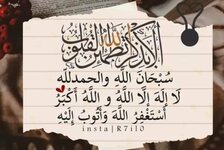 ألا بذكر الله تطمئن القلوب
سُبْحَانَ اللَّهِ والحمدلله
لَا إِلَهَ إِلَّا اللَّهُ و اللَّهُ أَكْبَرُ
أَسْتَغْفِرُ اللَّهَ وَأَتُوبُ إِلَيْهِ
insta|R7il0